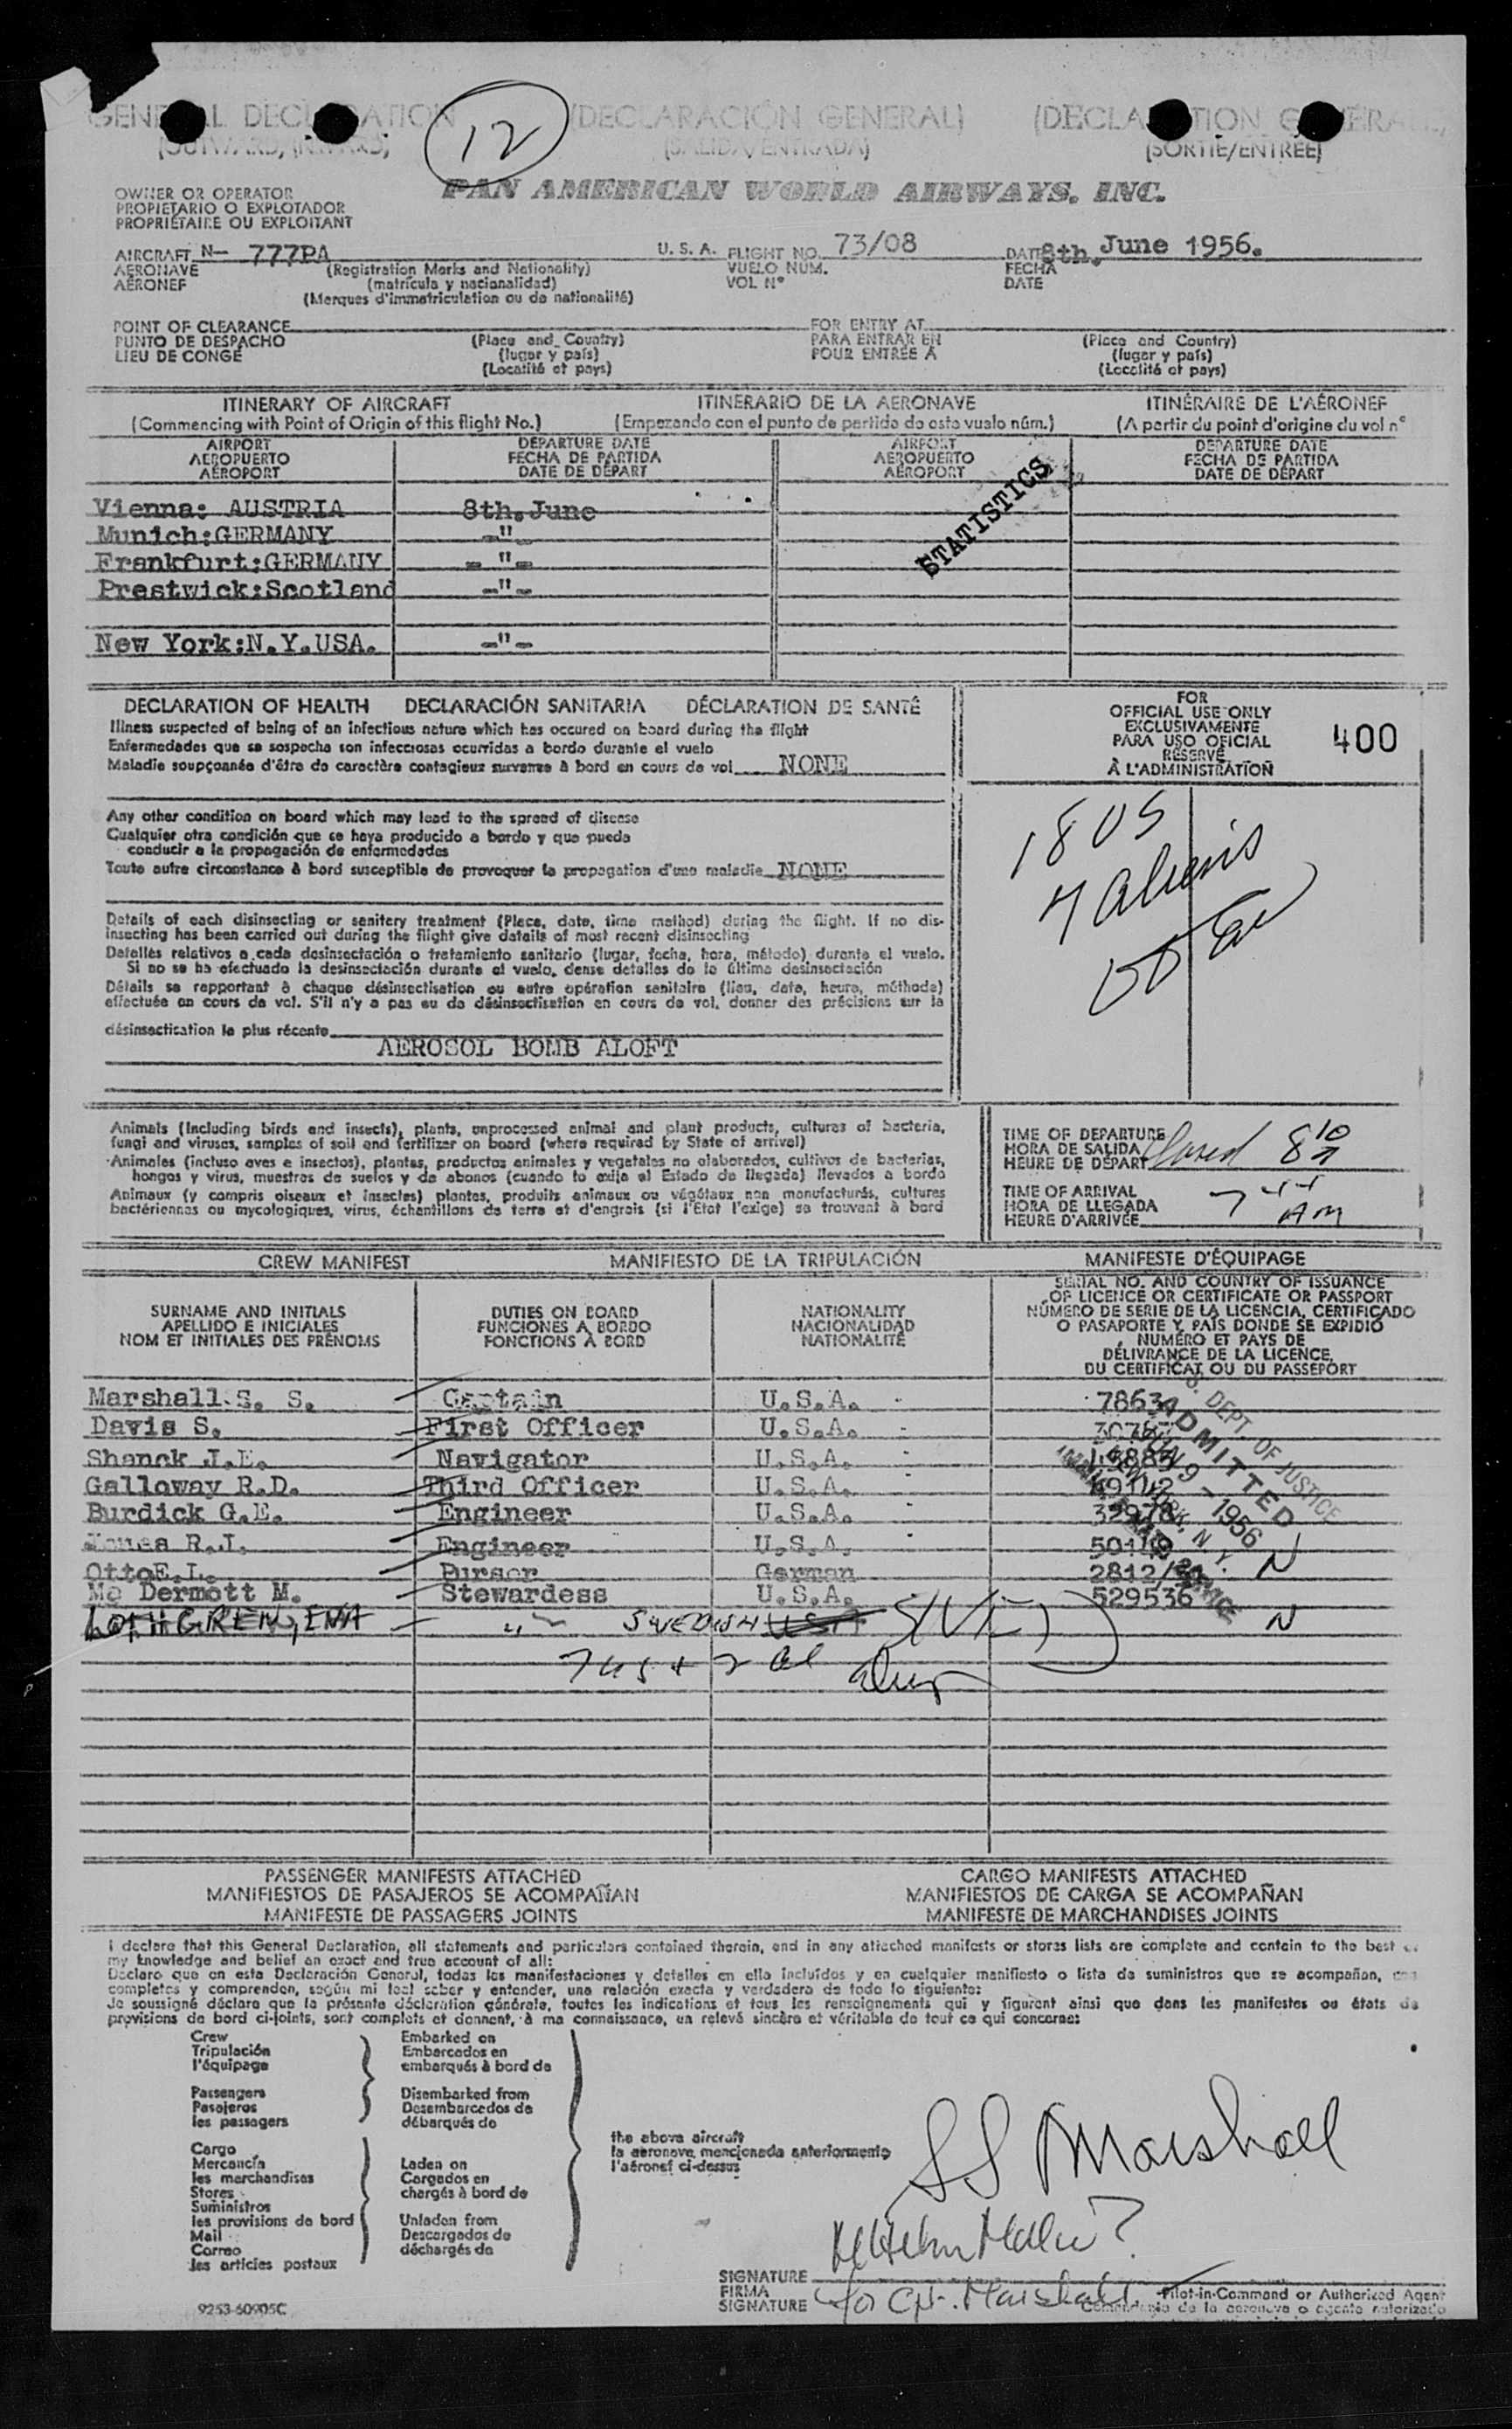 GENERAL DECLARATION (DECLARACIÓN GENERAL) (DECLARATION GÉNÉRALE)
(OUTWARD/INWARD) (SALIDA/ENTRADA) (SORTIE/ENTRÉE)
12
OWNER OR OPERATOR
PROPIETARIO O EXPLOTADOR
PROPRIÉTAIRE OU EXPLOITANT
PAN AMERICAN WORLD AIRWAYS, INC.
AIRCRAFT N- 777PA U. S. A. FLIGHT NO. 73/08 DATE 8th. June 1956.
AERONAVE (Registration Marks and Nationality) VUELO NÚM. FECHA
AÉRONEF (matrícula y nacionalidad) VOL Nº DATE
(Merques d'immatriculation ou de nationalité)
POINT OF CLEARANCE FOR ENTRY AT
PUNTO DE DESPACHO (Place and Country) PARA ENTRAR EN (Place and Country)
LIEU DE CONGÉ (lugar y país) POUR ENTRÉE A (lugar y país)
(Localité et pays) (Localité et pays)
ITINERARY OF AIRCRAFT ITINERARIO DE LA AERONAVE ITINÉRAIRE DE L'AÉRONEF
(Commencing with Point of Origin of this flight No.) (Empezando con el punto de partida de este vuelo núm.) (A partir du point d'origine du vol nº
AIRPORT DEPARTURE DATE AIRPORT DEPARTURE DATE
AEROPUERTO FECHA DE PARTIDA AEROPUERTO FECHA DE PARTIDA
AÉROPORT DATE DE DÉPART AÉROPORT DATE DE DÉPART
Vienna: AUSTRIA 8th.June
Munich:GERMANY -"-
Frankfurt:GERMANY -"-
Prestwick:Scotland -"-
New York:N.Y.USA. -"-
STATISTICS
DECLARATION OF HEALTH DECLARACIÓN SANITARIA DÉCLARATION DE SANTÉ
Illness suspected of being of an infectious nature which has occured on board during the flight
Enfermedades que se sospecha son infecciosas ocurridas a bordo durante el vuelo
Maladie soupçonnée d'être de caractère contagieux survenue à bord en cours de vol NONE
Any other condition on board which may lead to the spread of disease
Cualquier otra condición que se haya producido a bordo y que pueda
conducir a la propagación de enfermedades
Toute autre circonstance à bord susceptible de provoquer la propagation d'une maladie NONE
Details of each disinsecting or sanitary treatment (Place, date, time method) during the flight. If no dis-
insecting has been carried out during the flight give details of most recent disinsecting
Detalles relativos a cada desinsectación o tratamiento sanitario (lugar, fecha, hora, método) durante el vuelo.
Si no se ha efectuado la desinsectación durante el vuelo, dense detalles de la última desinsectación
Détails se rapportant à chaque désinsectisation ou autre opération sanitaire (lieu, date, heure, méthode)
effectuée en cours de vol. S'il n'y a pas eu de désinsectisation en cours de vol, donner des précisions sur la
désinsectisation la plus récente
AEROSOL BOMB ALOFT
FOR
OFFICIAL USE ONLY
EXCLUSIVAMENTE
PARA USO OFICIAL
RÉSERVÉ
À L'ADMINISTRATION
400
1805
Animals (Including birds and insects), plants, unprocessed animal and plant products, cultures of bacteria,
fungi and viruses, samples of soil and fertilizer on board (where required by State of arrival)
Animales (incluso aves e insectos), plantas, productos animales y vegetales no elaborados, cultivos de bacterias,
hongos y virus, muestras de suelos y de abonos (cuando lo exija el Estado de llegada) llevados a bordo
Animaux (y compris oiseaux et insectes) plantes, produits animaux ou végétaux non manufacturés, cultures
bactériennes ou mycologiques, virus, échantillons de terre et d'engrais (si l'Etat l'exige) se trouvant à bord
TIME OF DEPARTURE
HORA DE SALIDA
HEURE DE DÉPART 8 10
TIME OF ARRIVAL
HORA DE LLEGADA 7
HEURE D'ARRIVÉE AM
CREW MANIFEST MANIFIESTO DE LA TRIPULACIÓN MANIFESTE D'ÉQUIPAGE
SURNAME AND INITIALS
APELLIDO E INICIALES
NOM ET INITIALES DES PRÉNOMS
DUTIES ON BOARD
FUNCIONES A BORDO
FONCTIONS À BORD
NATIONALITY
NACIONALIDAD
NATIONALITÉ
SERIAL NO. AND COUNTRY OF ISSUANCE
OF LICENCE OR CERTIFICATE OR PASSPORT
NÚMERO DE SERIE DE LA LICENCIA, CERTIFICADO
O PASAPORTE Y PAÍS DONDE SE EXPIDIÓ
NUMÉRO ET PAYS DE
DÉLIVRANCE DE LA LICENCE,
DU CERTIFICAT OU DU PASSEPORT
Marshall S. S. Captain U.S.A. 7863
Davis S. First Officer U.S.A.
Shanck J.E. Navigator U.S.A.
Galloway R.D. Third Officer U.S.A.
Burdick G.E. Engineer U.S.A. 32978
R.J. Engineer U.S.A.
Otto E.L. Purser German 2812/ N
Mc Dermott M. Stewardess U.S.A. 529536
LOTHGREN, ENA " SWEDISH N
DEPT. OF JUSTICE
ADMITTED
JUN 9 - 1956
NEW YORK, N. Y.
PASSENGER MANIFESTS ATTACHED CARGO MANIFESTS ATTACHED
MANIFIESTOS DE PASAJEROS SE ACOMPAÑAN MANIFIESTOS DE CARGA SE ACOMPAÑAN
MANIFESTE DE PASSAGERS JOINTS MANIFESTE DE MARCHANDISES JOINTS
I declare that this General Declaration, all statements and particulars contained therein, and in any attached manifests or stores lists are complete and contain to the best
my knowledge and belief an exact and true account of all:
Declaro que en esta Declaración General, todas las manifestaciones y detalles en ella incluídos y en cualquier manifiesto o lista de suministros que se acompañan,
completos y comprenden, según mi leal saber y entender, una relación exacta y verdadera de todo lo siguiente:
Je soussigné déclare que la présente déclaration générale, toutes les indications et tous les renseignements qui y figurent ainsi que dans les manifestes ou états de
provisions de bord ci-joints, sont complets et donnent, à ma connaissance, un relevé sincère et véritable de tout ce qui concerne:
Crew Embarked on
Tripulación Embarcados en
l'équipage embarqués à bord de
Passengers Disembarked from
Pasajeros Desembarcados de
les passagers débarqués de
Cargo
Mercancía Laden on
les marchandises Cargados en
Stores chargés à bord de
Suministros
les provisions de bord Unladen from
Mail Descargados de
Correo déchargés de
les articles postaux
the above aircraft
la aeronave mencionada anteriormente
l'aéronef ci-dessus
SS Marshall
SIGNATURE
FIRMA
SIGNATURE for Cpt. Marshall
Pilot-in-Command or Authorized Agent
Comandante de la aeronave o agente autorizado
9253-60905C